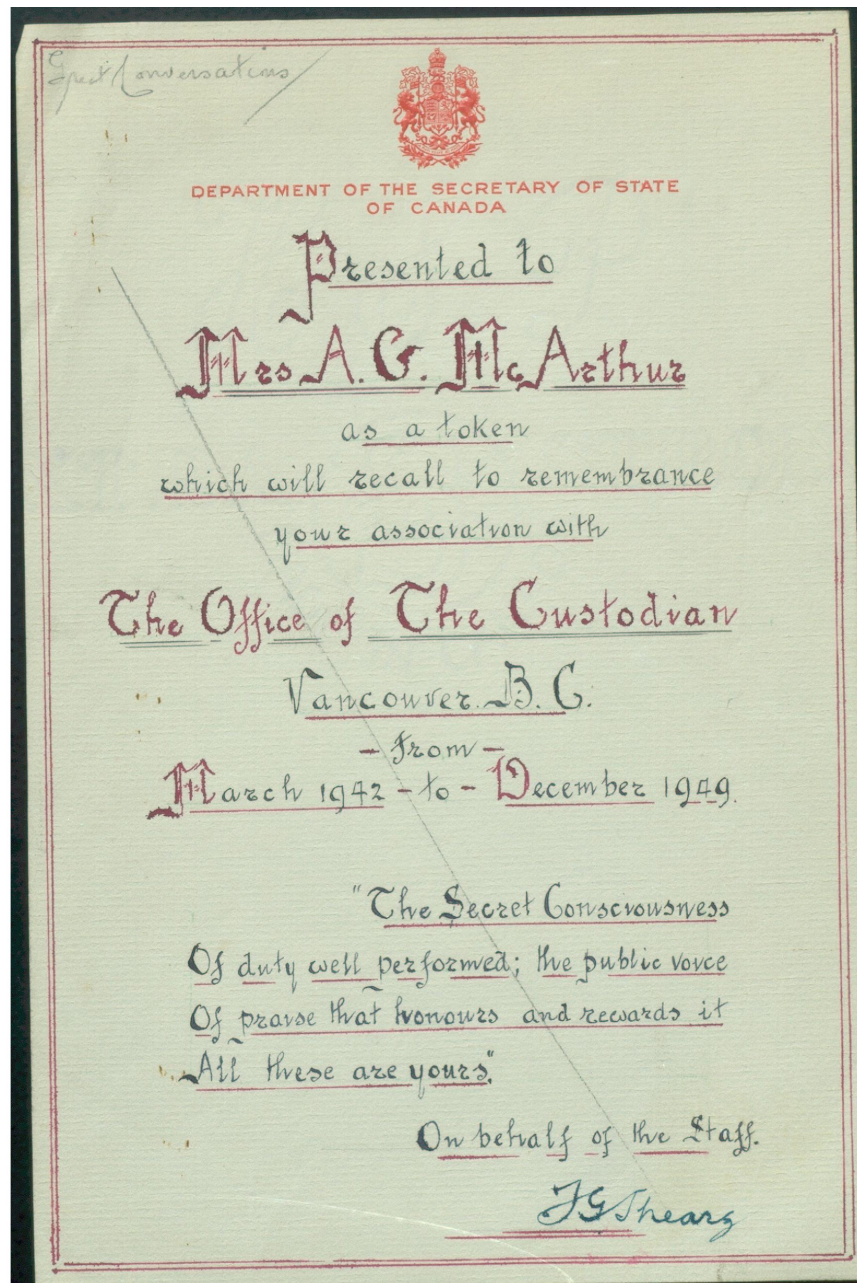 Great Conversations
DEPARTMENT OF THE SECRETARY OF STATE
OF CANADA
Presented to
Mrs A. G. McArthur
as a token
which will recall to remembrance
your association with
The Office of The Custodian
Vancouver. B. C.
- From -
March 1942 - to - December 1949.
"The Secret Consciousness
Of duty well performed; the public voice
Of praise that honours and rewards it
All these are yours."
On behalf of the Staff.
F G Shears